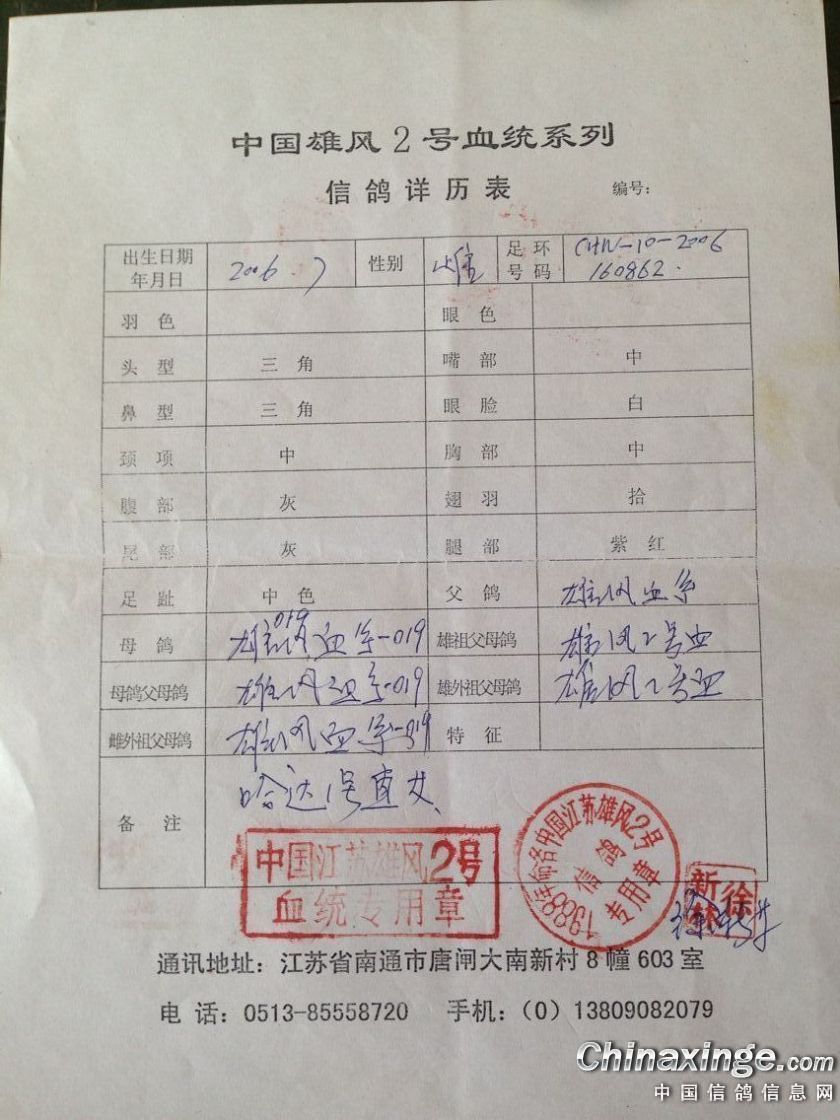 中国雄风2号血统系列
信鸽详历表 编号:
出生日期年月日 2006.7 性别 雌 足环号码 CHN-10-2006 160862.
羽色 眼色
头型 三角 嘴部 中
鼻型 三角 眼脸 白
颈项 中 胸部 中
腹部 灰 翅羽 拾
尾部 灰 腿部 紫红
足趾 中色 父鸽 雄风血系
019
母鸽 雄风血系-019 雄祖父母鸽 雄风2号血
母鸽父母鸽 雄风血系-019 雄外祖父母鸽 雄风2号血
雌外祖父母鸽 雄风血系-019 特征
备注 哈达1号直女
中国江苏雄风2号
血统专用章
1988年命名中国江苏雄风2号
信鸽
专用章
徐新林
通讯地址：江苏省南通市唐闸大南新村8幢603室
电话：0513-85558720 手机：（0）13809082079
Chinaxinge.com
中国信鸽信息网